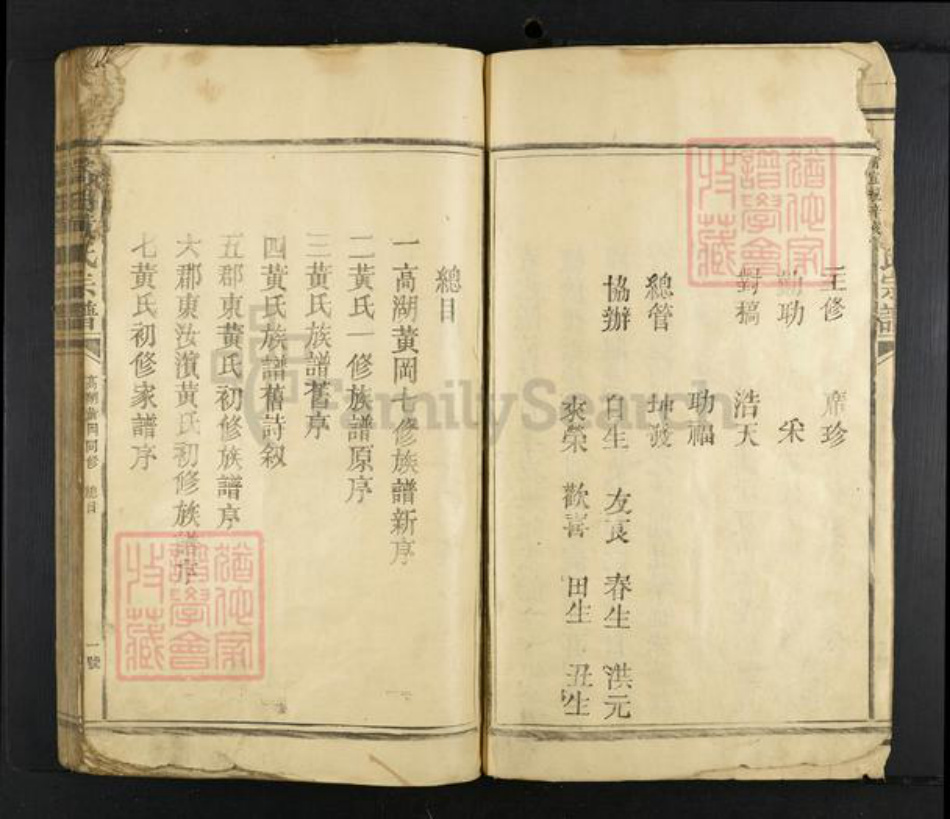 主修 席珍
勷助 采
對稿 浩天
助福
總管 坤發
協辦 自生 友良 春生 洪元
來榮 歡喜 田生 丑生
總目
一高湖黃岡七修族譜新序
二黃氏一修族譜原序
三黃氏族譜舊序
四黃氏族譜舊詩敘
五郡東黃氏初修族譜序
六郡東汝濱黃氏初修族譜序
七黃氏初修家譜序
氏宗譜
高湖黃岡同修 總目
一號
猶他家譜學會收藏
猶他家譜學會收藏
FamilySearch